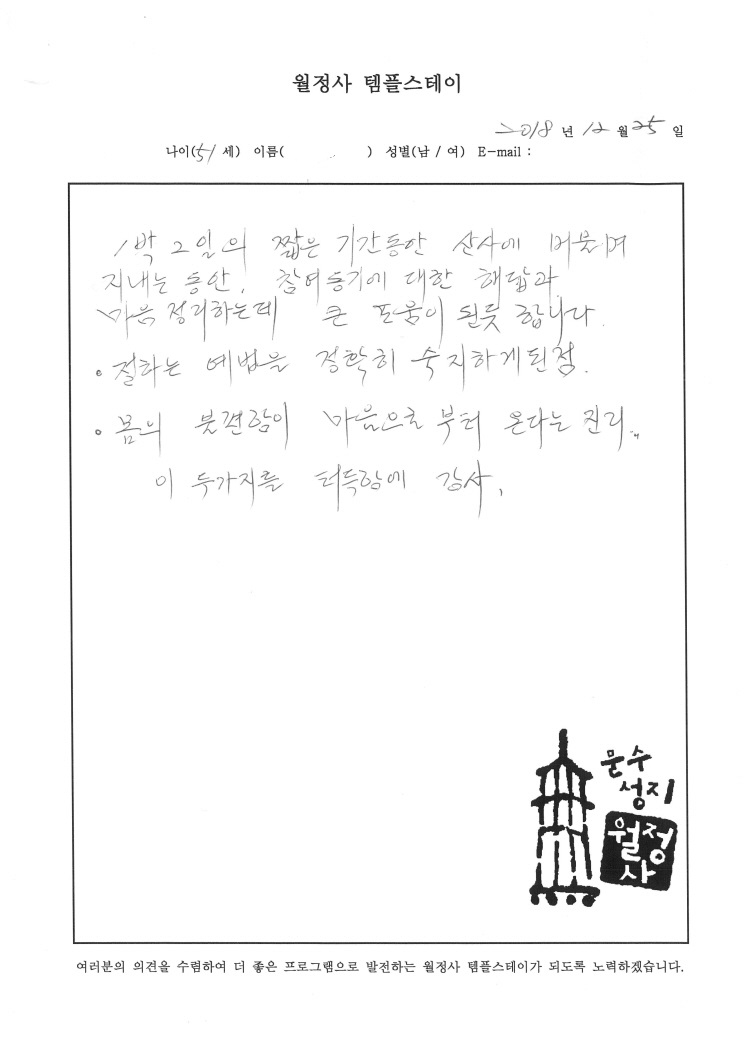 월정사 템플스테이
2018 년 12 월 25 일
나이(51 세) 이름( ) 성별(남 / 여) E-mail :
1박 2일의 짧은 기간동안 산사에 머물며
지내는 동안, 참여동기에 대한 해답과
마음 정리하는데 큰 도움이 된듯 합니다.
• 절하는 예법을 정확히 숙지하게된점.
• 몸의 불편함이 마음으로 부터 온다는 진리..
이 두가지를 터득함에 감사,
문수
성지
월정
사
여러분의 의견을 수렴하여 더 좋은 프로그램으로 발전하는 월정사 템플스테이가 되도록 노력하겠습니다.